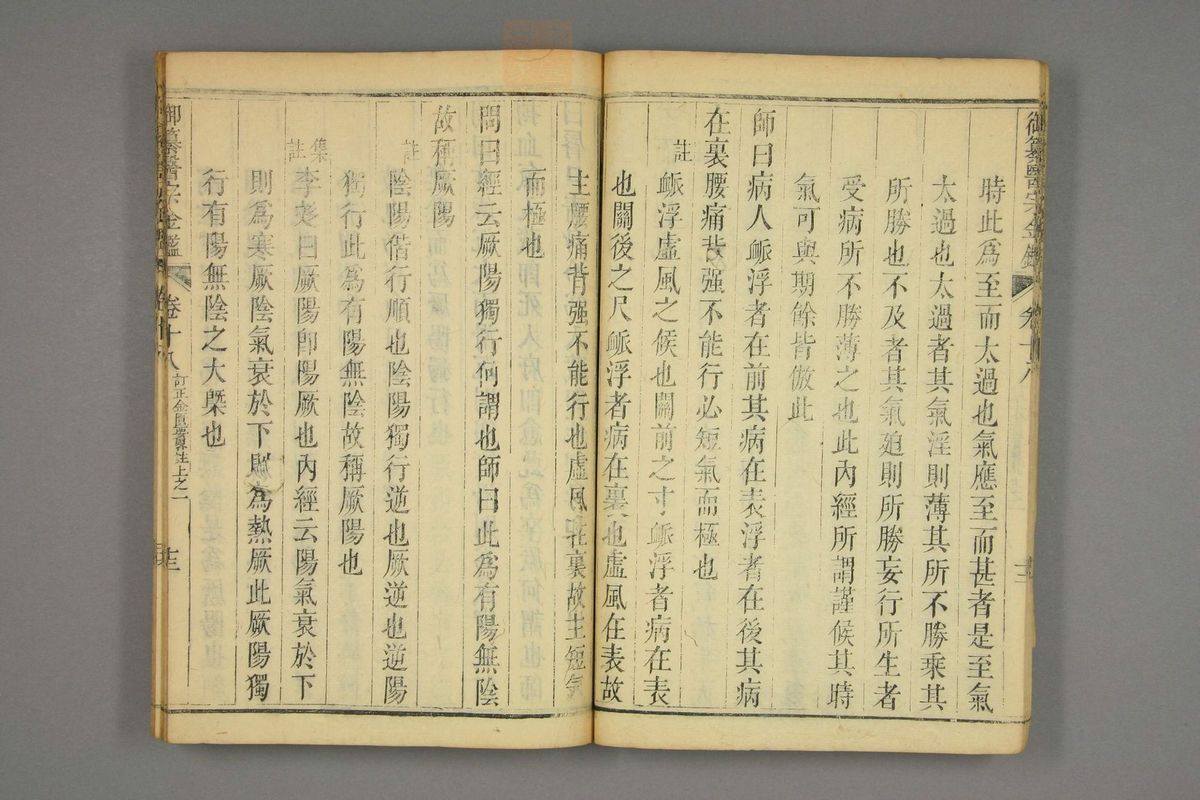 御纂醫宗金鑑
卷十八
時此為至而太過也氣應至而甚者是至氣
太過也太過者其氣淫則薄其所不勝乘其
所勝也不及者其氣廹則所勝妄行所生者
受病所不勝薄之也此內經所謂謹候其時
氣可與期餘皆倣此
師曰病人脈浮者在前其病在表浮者在後其病
在裏腰痛背强不能行必短氣而極也
註
脈浮虛風之候也關前之寸脈浮者病在表
也關後之尺脈浮者病在裏也虛風在表故
主腰痛背强不能行也虛風在裏故主短氣
而極也
問曰經云厥陽獨行何謂也師曰此為有陽無陰
故稱厥陽
註
陰陽偕行順也陰陽獨行逆也厥逆也逆陽
獨行此為有陽無陰故稱厥陽也
集註
李彣曰厥陽卽陽厥也內經云陽氣衰於下
則為寒厥陰氣衰於下則為熱厥此厥陽獨
行有陽無陰之大槩也
御纂醫宗金鑑
卷十八
訂正金匱要畧註上之一